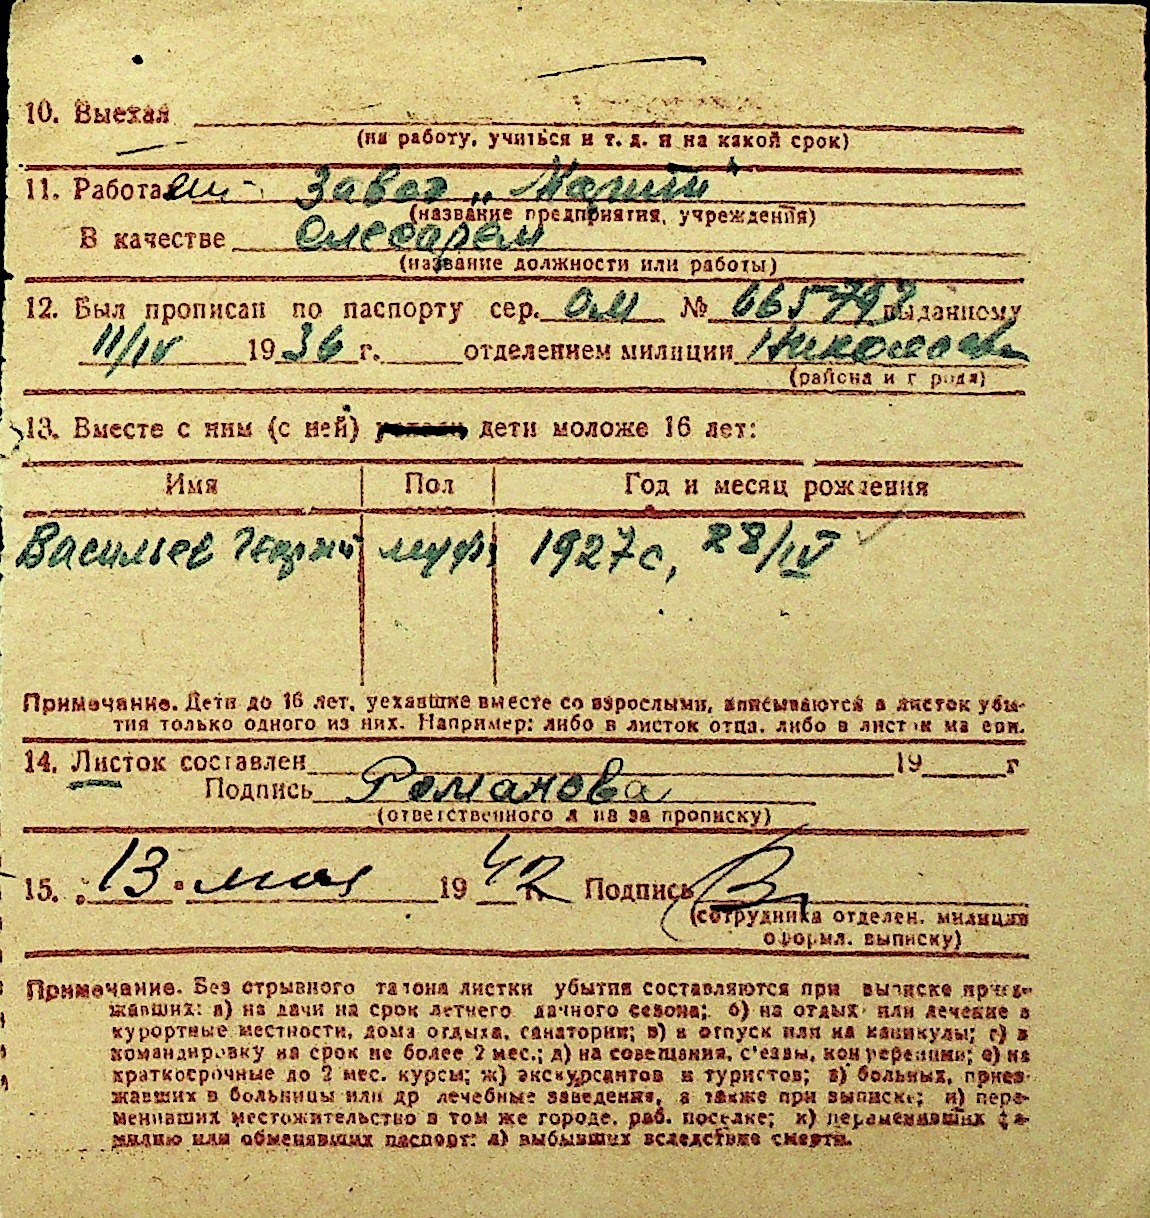 10. Выехал
(на работу, учиться и т. д. и на какой срок)
11. Работа Завод „Марти"
(название предприятия, учреждения)
В качестве слесарем
(название должности или работы)
12. Был прописан по паспорту сер. ОМ № 665793 выданному
11/IV 1936 г. отделением милиции
(района и города)
13. Вместе с ним (с ней) дети моложе 16 лет:
Имя Пол Год и месяц рождения
Васильев Георгий муж 1927 г, 28/IV
Примечание. Дети до 16 лет, уехавшие вместе со взрослыми, вписываются в листок убы-
тия только одного из них. Например: либо в листок отца, либо в листок матери.
14. Листок составлен 19 г
Подпись Романова
(ответственного лица за прописку)
15. „13" мая 1942 г. Подпись
(сотрудника отделен. милиции
оформл. выписку)
Примечание. Без отрывного талона листки убытия составляются при выписке приез-
жавших: а) на дачи на срок летнего дачного сезона; б) на отдых или лечение в
курортные местности, дома отдыха, санатории; в) в отпуск или на каникулы; г) в
командировку на срок не более 2 мес.; д) на совещания, с'езды, конференции; е) на
краткосрочные до 2 мес. курсы; ж) экскурсантов и туристов; з) больных, приез-
жавших в больницы или др лечебные заведения, а также при выписке; и) пере-
менивших местожительство в том же городе, раб. поселке; к) переменивших фа-
милию или обменявших паспорт: л) выбывших вследствие смерти.